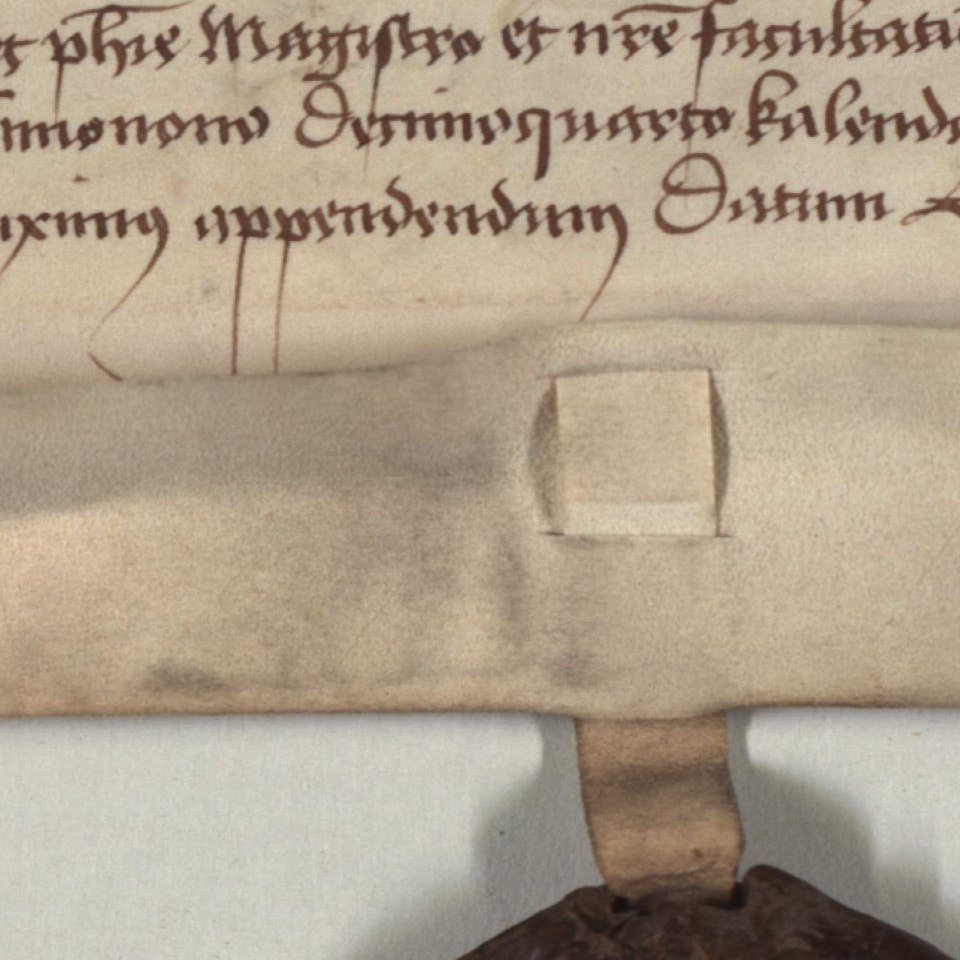 et phie Magistro et nre facultati
monono Decimoquarto kalend
ximus appendendum Datum